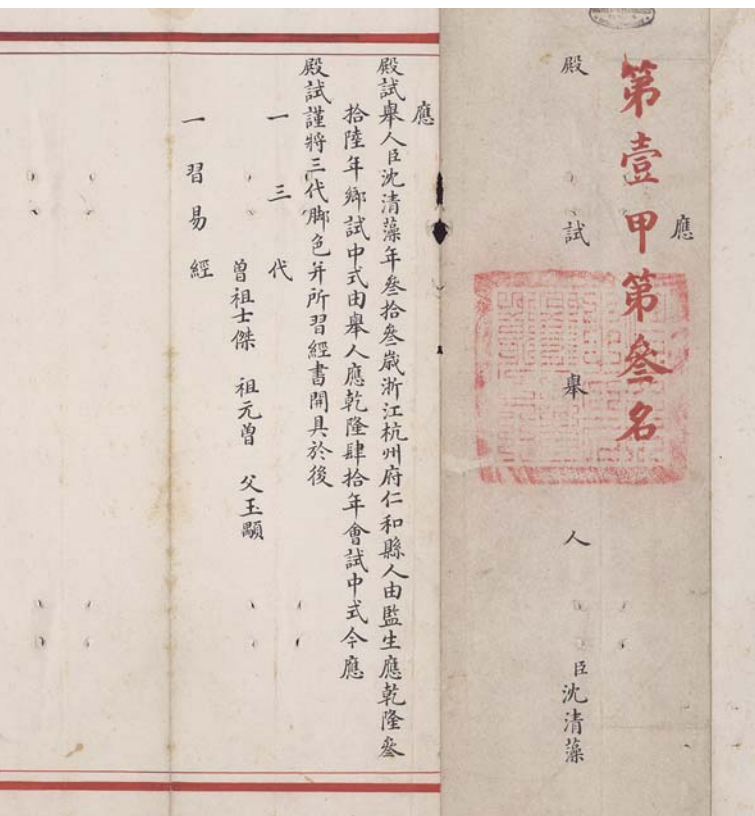 第壹甲第叄名
應
殿試舉人臣沈清藻
應
殿試舉人臣沈清藻年叄拾叄歲浙江杭州府仁和縣人由監生應乾隆叄
拾陸年鄉試中式由舉人應乾隆肆拾年會試中式今應
殿試謹將三代脚色并所習經書開具於後
一三代
曾祖士傑 祖元曾 父玉顯
一習易經